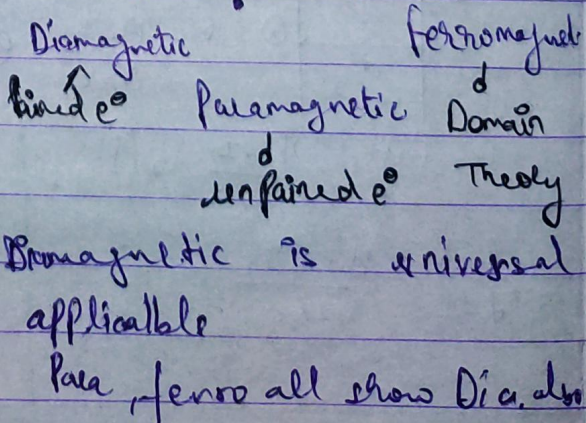 Diamagnetic Ferromagnet
Paired e⊖ Paramagnetic Domain
unpaired e⊖ Theory
Diamagnetic is universal
applicalble
Para, ferro all show Dia. also